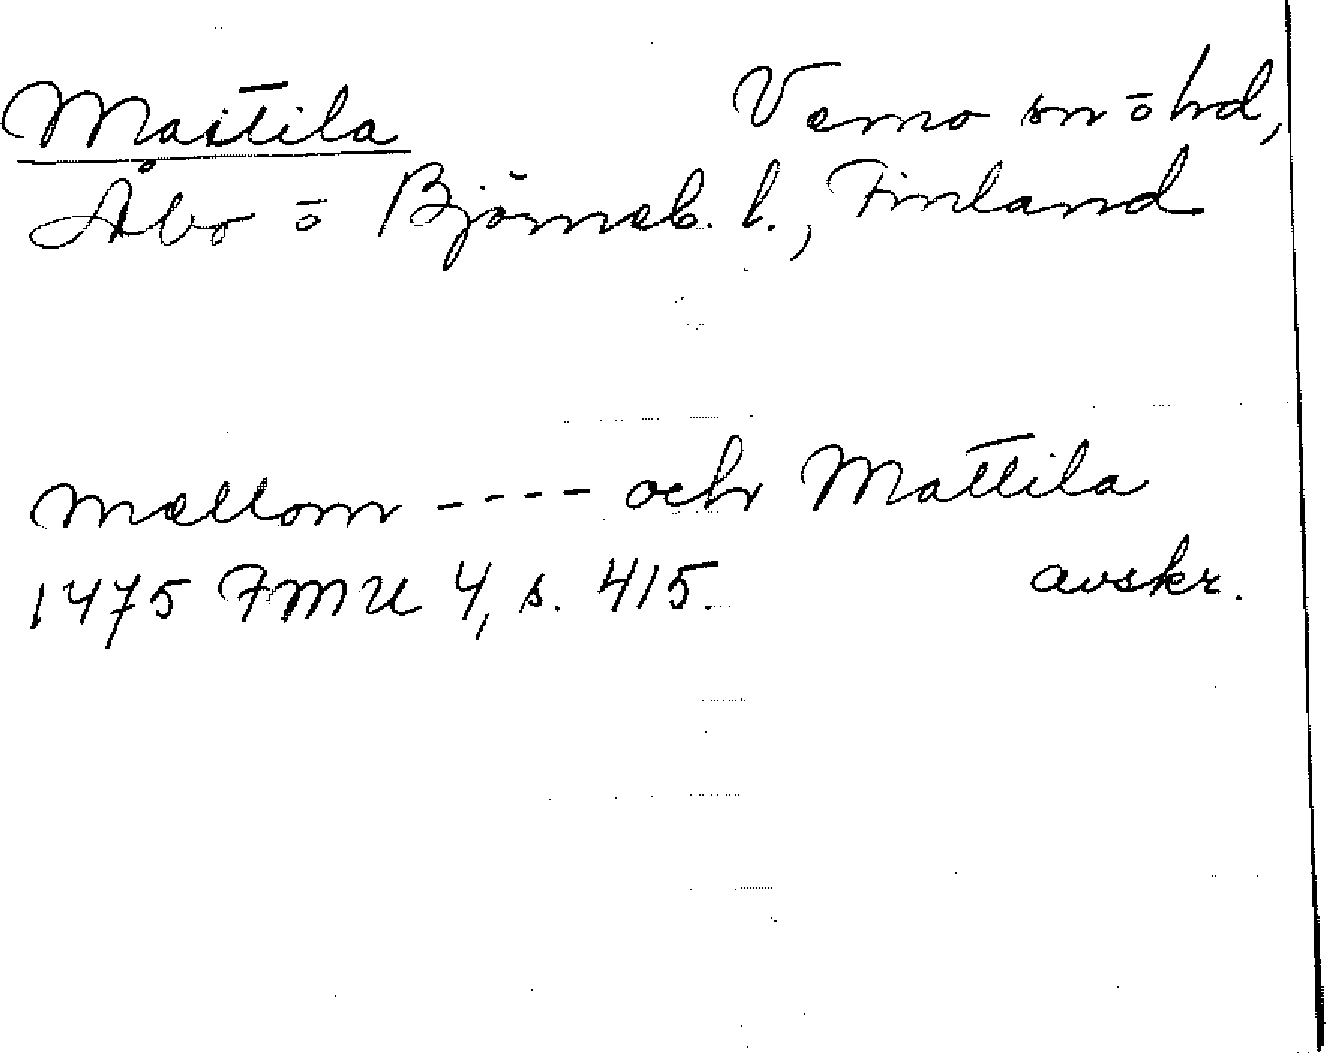 Mattila Vemo sn o hd,
Åbo o Björneb. l., Finland
mellom ---- och Mattila
1475 FMU 4, s. 415. avskr.